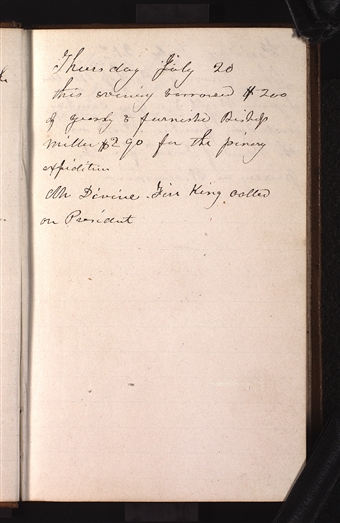 Thursday July 20
this evening borrowed $200
of gresly & furnished Bishop
Miller $290 for the pinery
expidition
Mr Divine Fire King called
on President